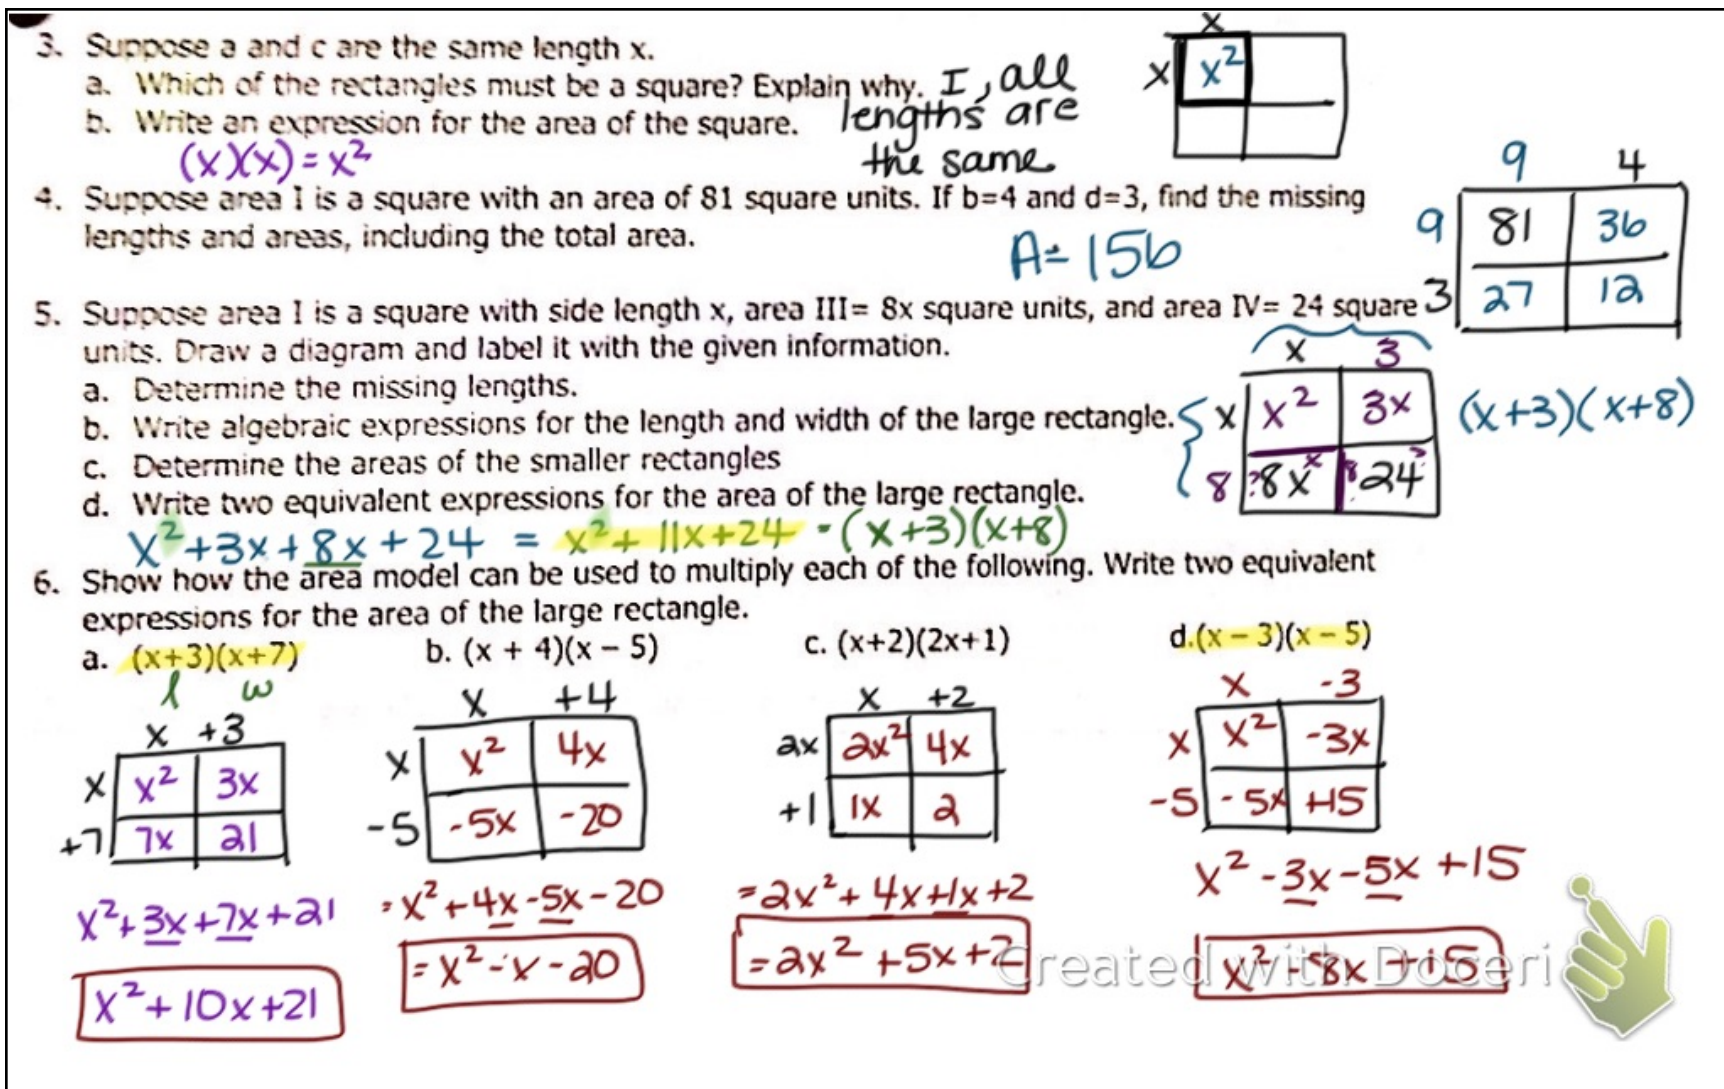 3. Suppose a and c are the same length x.
a. Which of the rectangles must be a square? Explain why. I, all
lengths are
the same
b. Write an expression for the area of the square.
(x)(x) = x²
x
x x²
4. Suppose area I is a square with an area of 81 square units. If b=4 and d=3, find the missing
lengths and areas, including the total area.
A= 156
9 4
9 81 36
3 27 12
5. Suppose area I is a square with side length x, area III= 8x square units, and area IV= 24 square
units. Draw a diagram and label it with the given information.
a. Determine the missing lengths.
b. Write algebraic expressions for the length and width of the large rectangle.
c. Determine the areas of the smaller rectangles
d. Write two equivalent expressions for the area of the large rectangle.
x 3
x x² 3x (x+3)(x+8)
8 ?8x x 8 24 ?
x²+3x+8x+24 = x²+11x+24 = (x+3)(x+8)
6. Show how the area model can be used to multiply each of the following. Write two equivalent
expressions for the area of the large rectangle.
a. (x+3)(x+7) b. (x + 4)(x – 5) c. (x+2)(2x+1) d.(x – 3)(x – 5)
l w
x +3
x x² 3x
+7 7x 21
x²+3x+7x+21
x²+10x+21
x +4
x x² 4x
-5 -5x -20
=x²+4x-5x-20
=x²-x-20
x +2
2x 2x² 4x
+1 1x 2
=2x²+4x+1x+2
=2x²+5x+2
x -3
x x² -3x
-5 -5x +15
x²-3x-5x+15
x²-8x+15
Created with Doceri